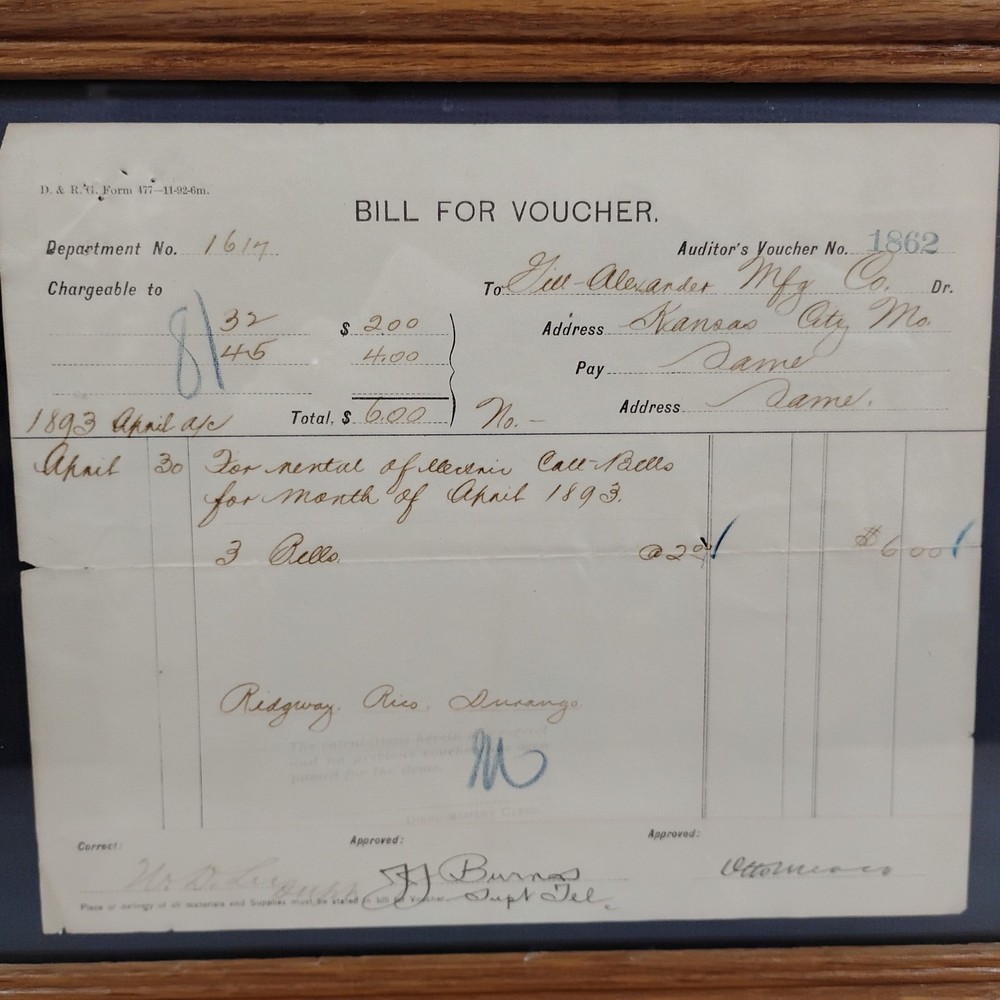 D. & R. G. Form 477—11-92-6m.
BILL FOR VOUCHER.
Department No. 1617
Auditor's Voucher No. 1862
Chargeable to
To Gill-Alexander Mfg Co. Dr.
8/
32 $ 2.00
45 4.00
Total, $ 6.00
Address Kansas City Mo.
Pay Same
Address Same.
1893 April a/c
No. -
April 30 For rental of Call-Bells
for month of April 1893.
3 Bells. @ 2.00 $ 6.00
Ridgway. Rico. Durango.
M
The calculations herein
and no previous voucher
passed for the same.
Correct:
Approved:
Approved:
W. D. Lee
JJ Burns
Supt Tel.
Otto Mears
Place of delivery of all materials and Supplies must be stated in bill for Voucher.